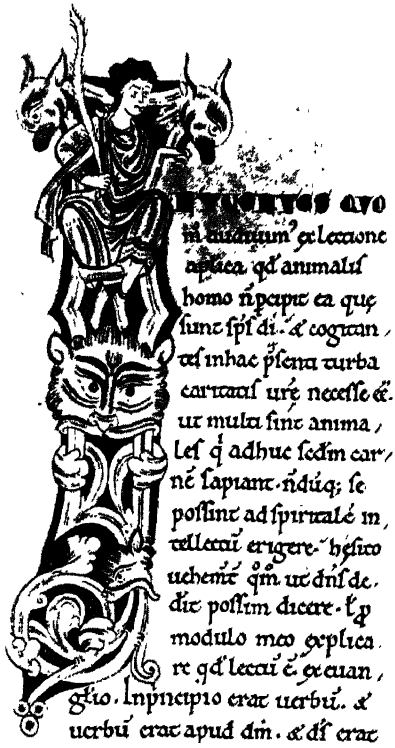 NTUENTES QUO
m̄ audiuim᾽ ex lectione
aplica qđ animalis
homo n̄ pcipit ea quę
sunt sp̄s di. & cogitan,
tes in hac p̄senti turba
caritatis ur̄ę necesse eē.
ut multi sint anima,
les q́ adhuc scđm car,
nē sapiant. n̄dūq; se
possint ad spiritalē in,
tellectū erigere. hęsito
uehem̄t qm̊ ut dn̄s de,
dit possim dicere. ł p
modulo meo explica
re qđ lectū ē. ex euan,
glio. In principio erat uerbū. &
uerbū erat apud dm̄. & ds̄ erat